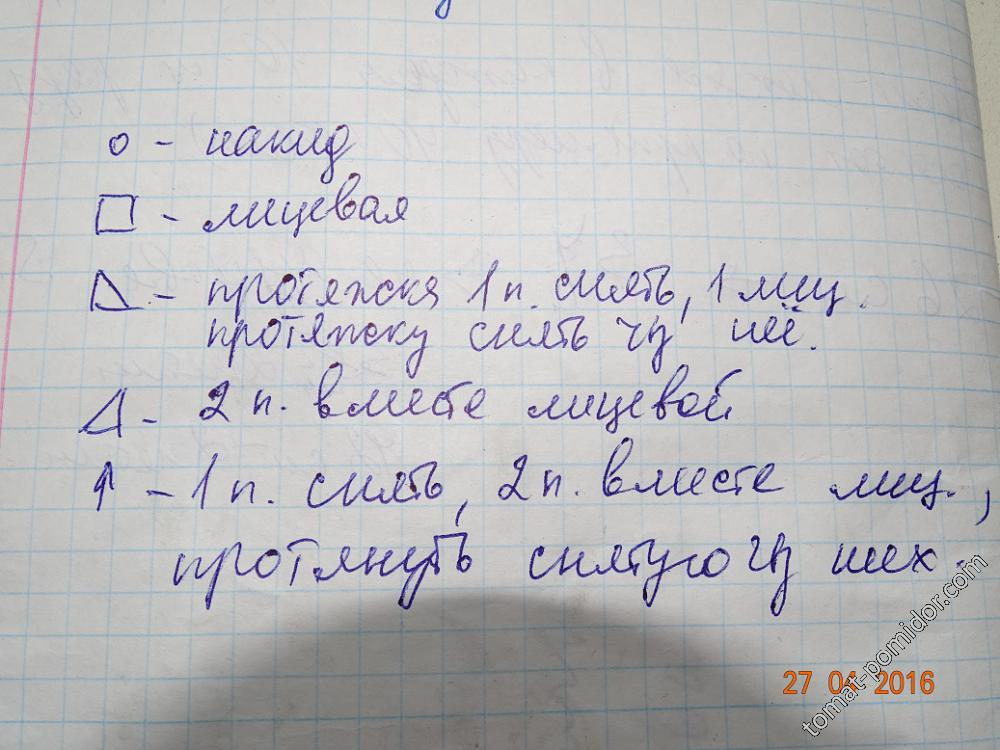 о - накид
□ - лицевая
◺ - протяжка 1 п. снять, 1 лиц.
протяжку снять чз неё.
◿ - 2 п. вместе лицевой
↑ - 1 п. снять, 2 п. вместе лиц.,
протянуть снятую чз них.
27 04 2016
tomat-pomidor.com